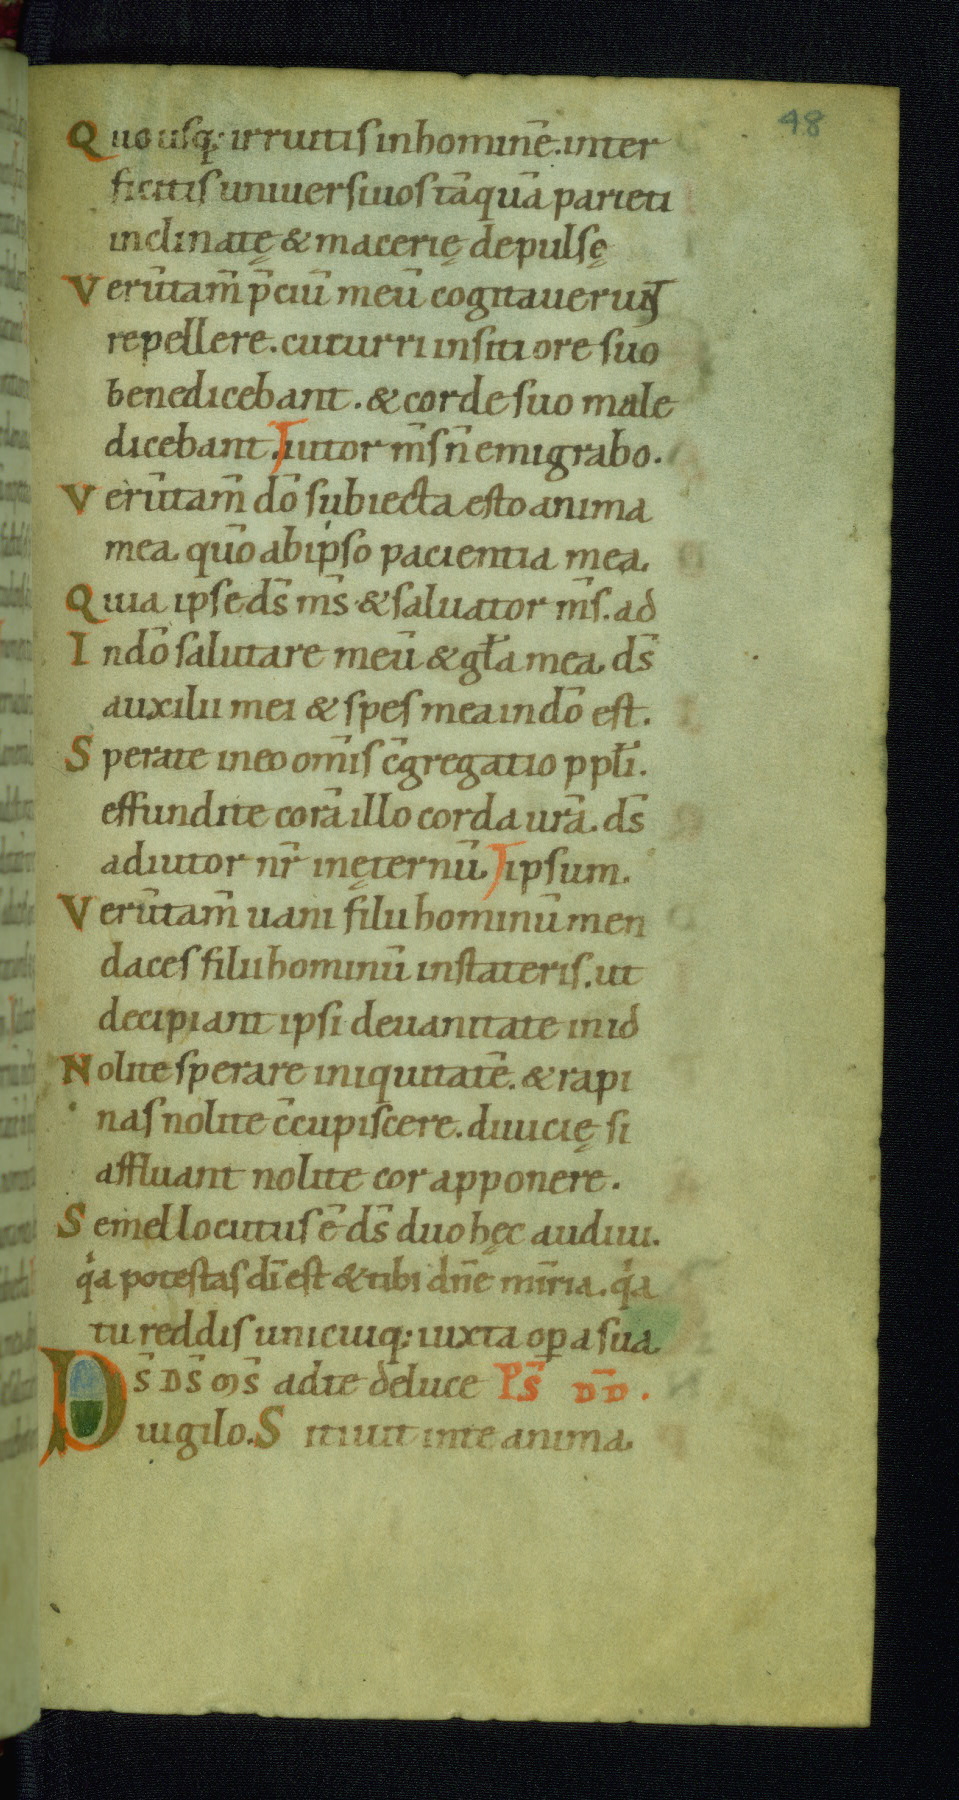 48
Quo usq; irruitis in hominē. inter
ficitis uniuersi uos tāquā parieti
inclinatę & macerię depulsę
Verūtam̄ p̄ciū meū cogitauerunt
repellere. cucurri in siti ore suo
benedicebant. & corde suo male
dicebant. iutor m̄s n̄ emigrabo.
Verūtam̄ dō subiecta esto anima
mea. qūo ab ipso pacientia mea.
Quia ipse ds̄ ms̄ & saluator m̄s. ad
In dō salutare meū & gł̄a mea. ds̄
auxilii mei & spes mea in dō est.
Sperate in eo om̄is c̄gregatio ppłi.
effundite corā illo corda ur̄a. ds̄
adiutor nr̄ in ęternū. ipsum.
Verūtam̄ uani filii hominū men
daces filii hominū in stateris. ut
decipiant ipsi de uanitate in id
Nolite sperare iniquitatē. & rapi
nas nolite c̄cupiscere. diuicię si
affluant nolite cor apponere.
Semel locutus ē ds̄ duo hęc audiui.
qͥa potestas dī est & tibi dn̄e mīria. qͥa
tu reddis unicuiq; iuxta oꝑa sua.
Ds̄ Ds̄ ms̄ ad te de luce Ps̄ DD̄.
uigilo. Sitiuit in te anima.